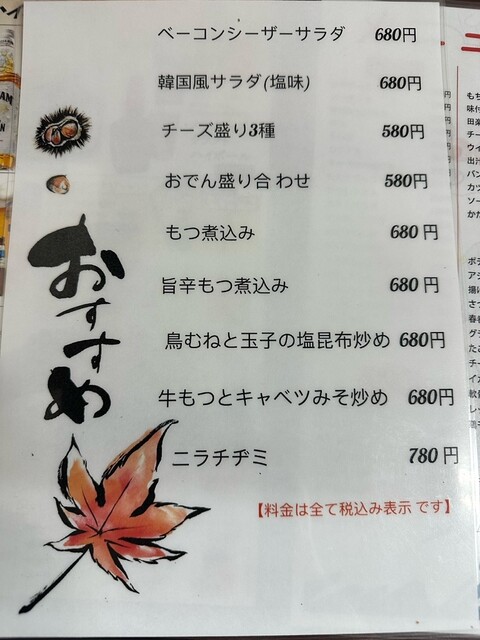 ベーコンシーザーサラダ 680円
韓国風サラダ(塩味) 680円
チーズ盛り3種 580円
おでん盛り合わせ 580円
もつ煮込み 680円
旨辛もつ煮込み 680円
鳥むねと玉子の塩昆布炒め 680円
牛もつとキャベツみそ炒め 680円
ニラチヂミ 780円
【料金は全て税込み表示です】
おすすめ